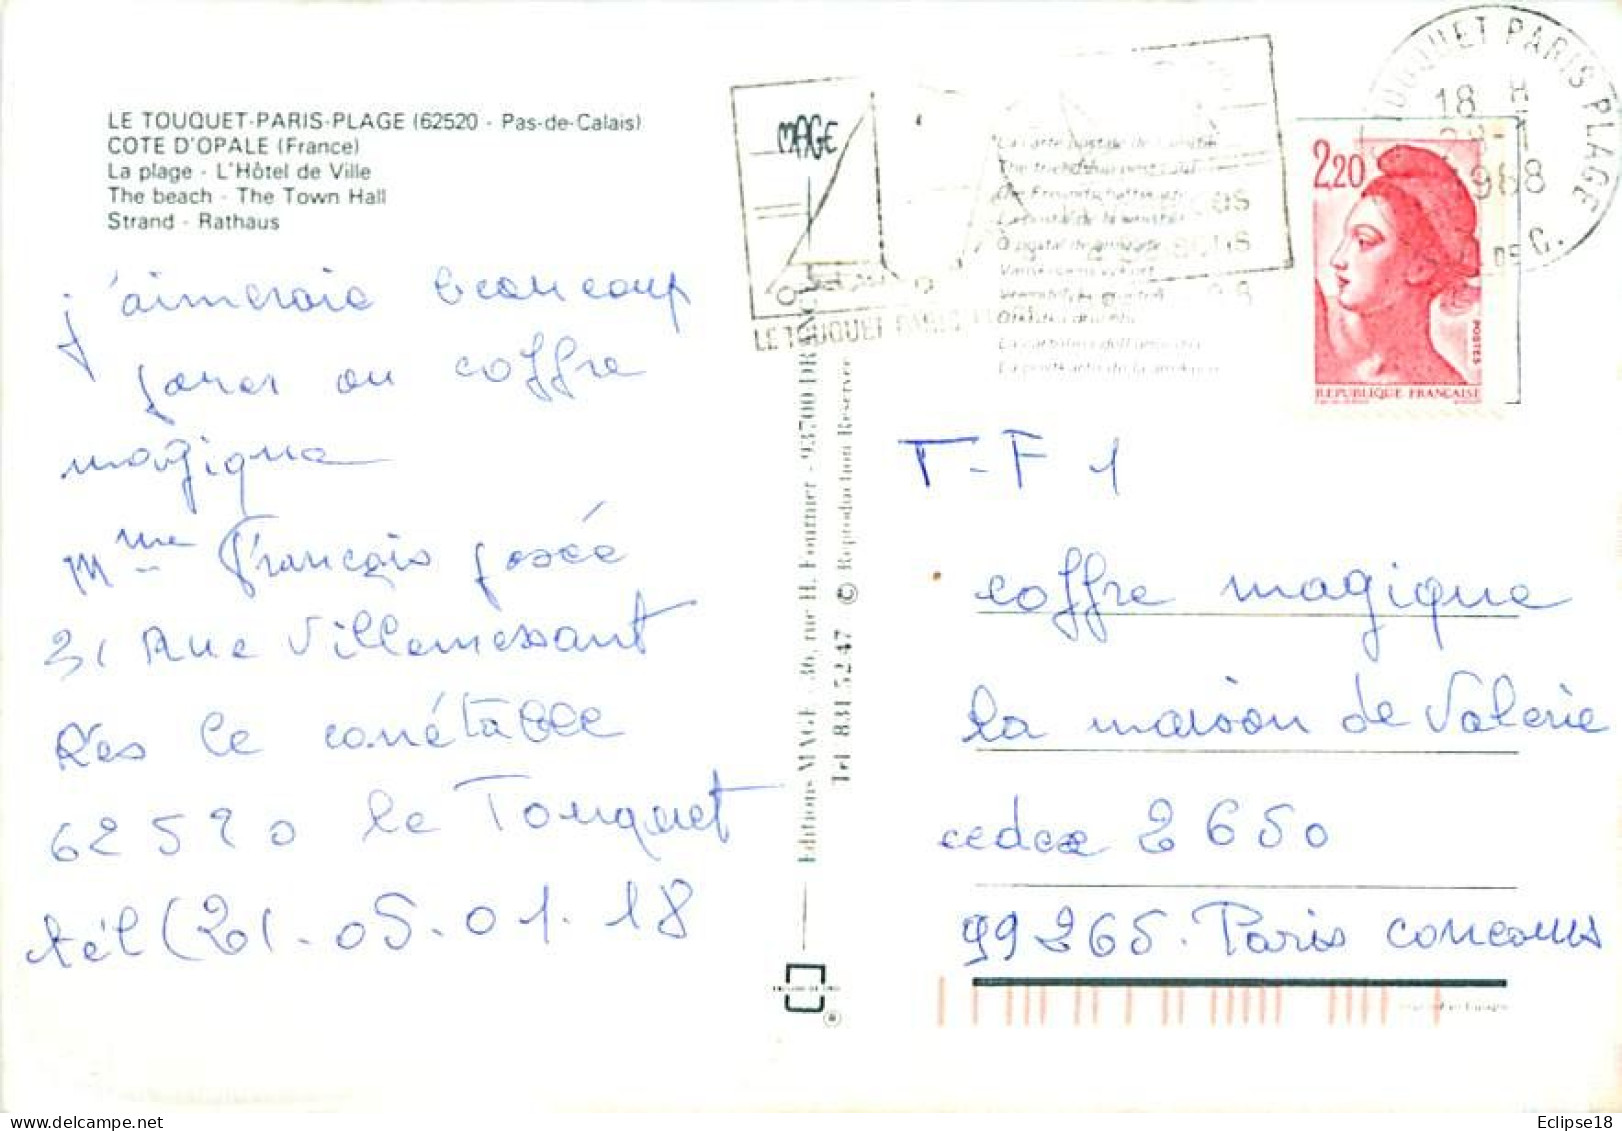 LE TOUQUET-PARIS-PLAGE (62520 - Pas-de-Calais)
COTE D'OPALE (France)
La plage - L'Hôtel de Ville
The beach - The Town Hall
Strand - Rathaus
j'aimerais beaucoup
jouer au coffre
magique
Mme François josée
31 Rue Villemessant
Res le conétable
62520 le Touquet
tél (21.05.01.18
MAGE
LE TOUQUET PARIS
Editions MAGE - 36, rue H. Fournier - 93700 DRANCY
Tel 831.52.47 © Reproduction Réservée
TOUQUET PARIS PLAGE
18 H
1988
2,20
POSTES
REPUBLIQUE FRANÇAISE
T-F 1
coffre magique
la maison de Valérie
cedex 2650
99265. Paris concours
Eclipse18